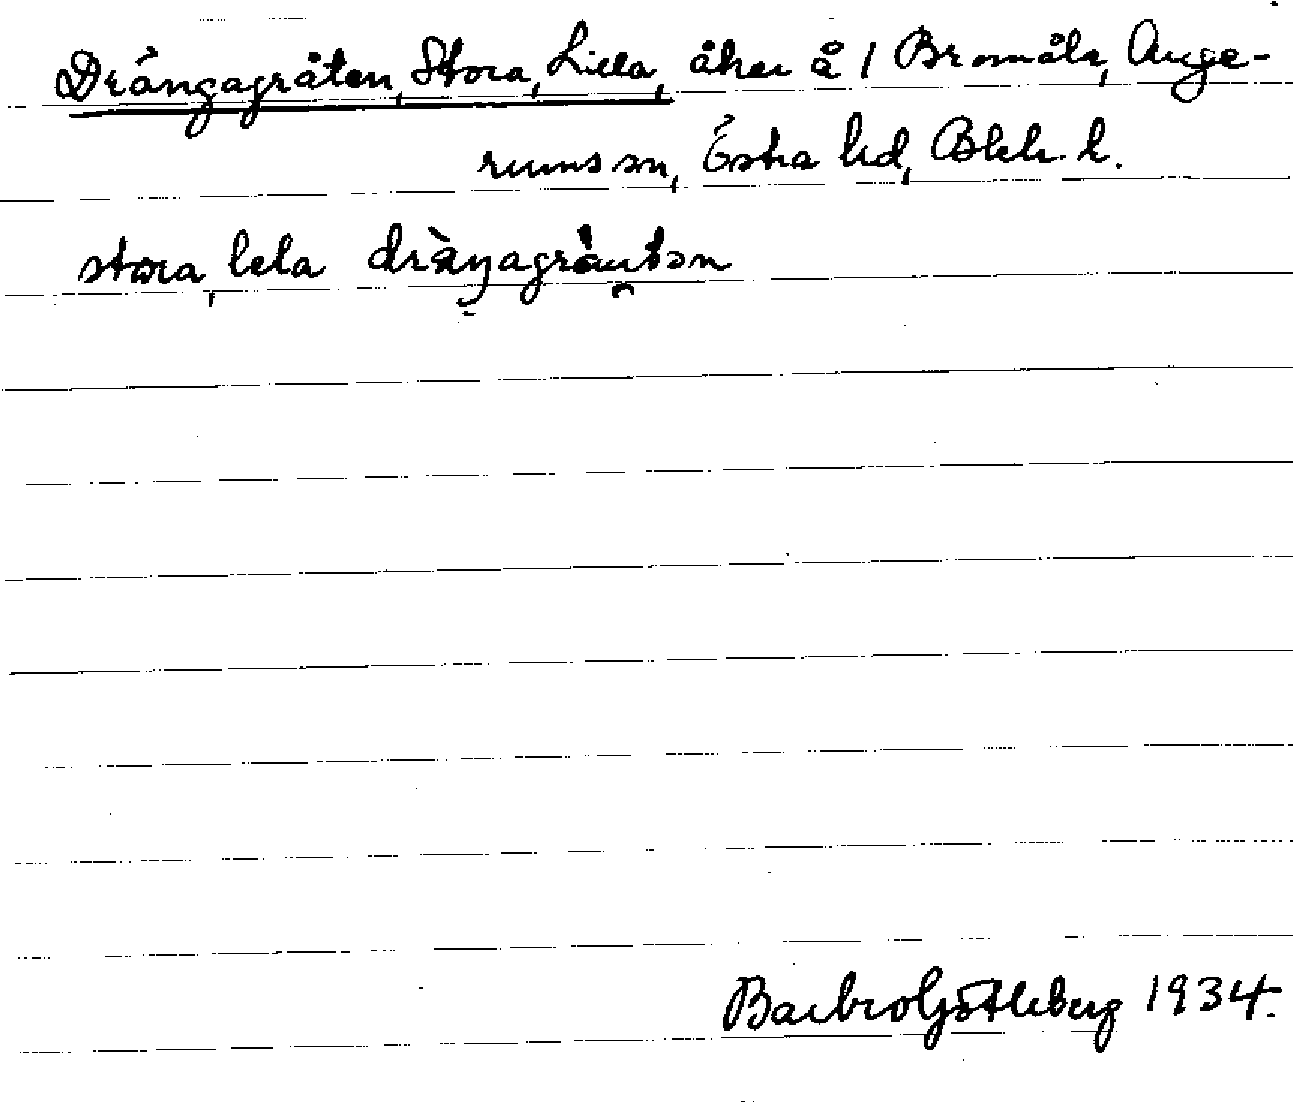 Drängagråten, Stora, Lilla, åker å 1 Bromåla, Auge-
rums sn, Östra hd, Blek. l.
stora, lela dräŋagråutən
Barbro Götleberg 1934.